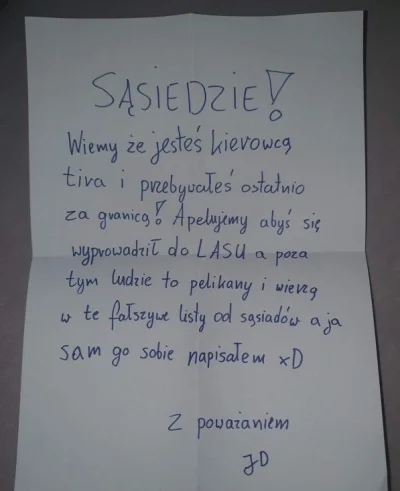 SĄSIEDZIE!
Wiemy że jesteś kierowcą
tira i przebywałeś ostatnio
za granicą! Apelujemy abyś się
wyprowadził do LASU a poza
tym ludzie to pelikany i wierzą
w te fałszywe listy od sąsiadów a ja
sam go sobie napisałem xD
Z poważaniem
JD